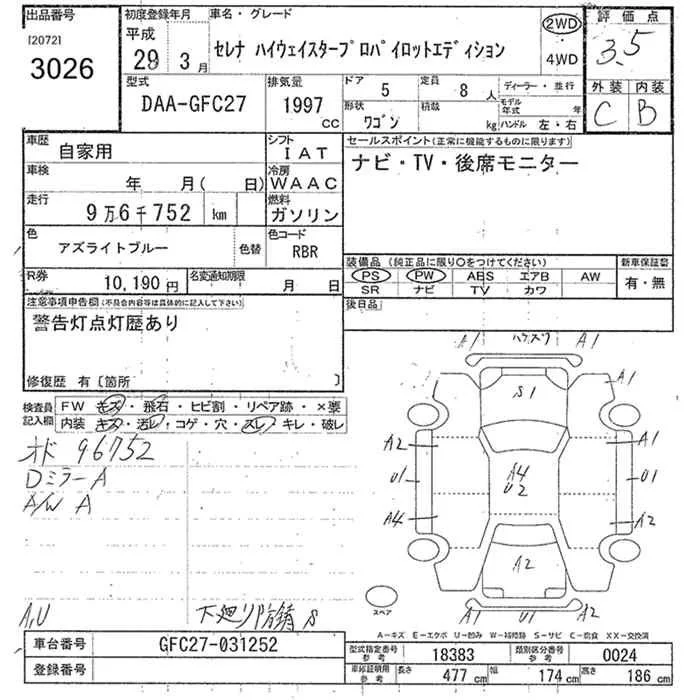 出品番号
[2072]
3026
初度登録年月
平成
29 3 月
車名・グレード
セレナ ハイウェイスタープロパイロットエディション
2WD
・
4WD
評価点
3.5
外装 内装
C B
型式
DAA-GFC27
排気量
1997
cc
ドア
5
定員
8 人
形状
ワゴン
積載
kg
ディーラー・並行
モデル年式 年
ハンドル 左・右
車歴
自家用
シフト
IAT
車検
年 月( 日)
冷房
WAAC
走行
9万6千752 km
燃料
ガソリン
色
アズライトブルー
色替
色コード
RBR
R券
10,190 円
名変通知期限
月 日
セールスポイント(正常に機能するものに限ります)
ナビ・TV・後席モニター
装備品(純正品に限り○をつけてください)
PS PW ABS エアB AW
SR ナビ TV カワ
新車保証書
有・無
後日品
注意事項申告欄(不具合内容等は具体的に記入して下さい)
警告灯点灯歴あり
修復歴 有〔箇所 〕
検査員記入欄
FW キズ・飛石・ヒビ割・リペア跡・×要
内装 キズ・汚レ・コゲ・穴・スレ・キレ・破レ
オド 96752
Dミラー A
A/W A
A,U
下廻り防錆 S
A1 ハナズク A1
S1
A1
A2
A1
U1
A4
U2
U1
A4
A2
A2
スペア
A1 U1 A2
A-キズ E-エクボ U-凹み W-補修跡 S-サビ C-腐食 XX-交換済
車台番号
GFC27-031252
登録番号
型式指定番号
参考
18383
類別区分番号
参考
0024
車庫証明用
参考
長さ
477 cm
幅
174 cm
高さ
186 cm